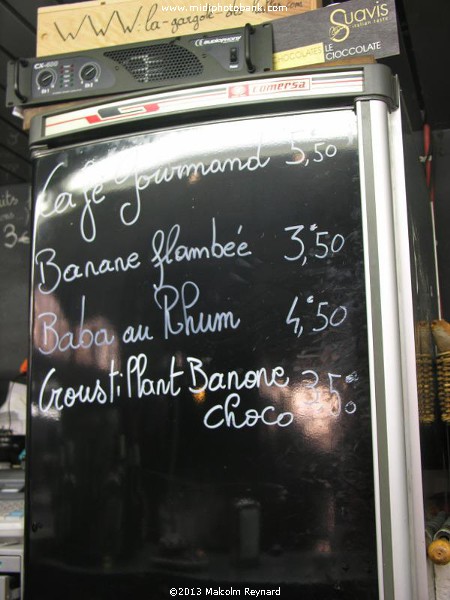 www.midiphotobank.com
www.la-gargote-des-
audiophony
CX-600
Suavis
italian taste
CHOCOLATES
LE CIOCCOLATE
comersa
Café Gourmand 5,50
Banane flambée 3,50
Baba au Rhum 4,50
Croustillant Banane
choco
©2013 Malcolm Reynard